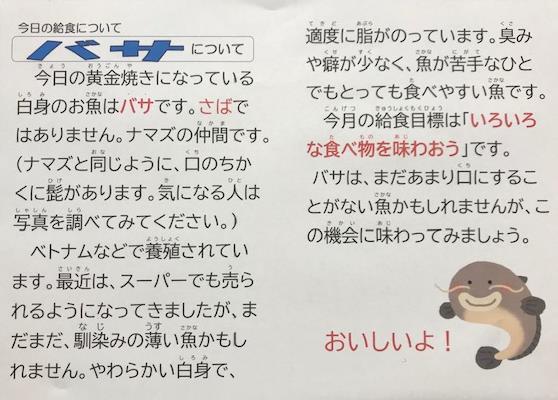 今日の給食について
バサについて
今日の黄金焼きになっている
白身のお魚はバサです。さばで
はありません。ナマズの仲間です。
(ナマズと同じように、口のちか
くに髭があります。気になる人は
写真を調べてみてください。)
ベトナムなどで養殖されてい
ます。最近は、スーパーでも売ら
れるようになってきましたが、ま
だまだ、馴染みの薄い魚かもし
れません。やわらかい白身で、
適度に脂がのっています。臭み
や癖が少なく、魚が苦手なひと
でもとっても食べやすい魚です。
今月の給食目標は「いろいろ
な食べ物を味わおう」です。
バサは、まだあまり口にするこ
とがない魚かもしれませんが、こ
の機会に味わってみましょう。
おいしいよ!